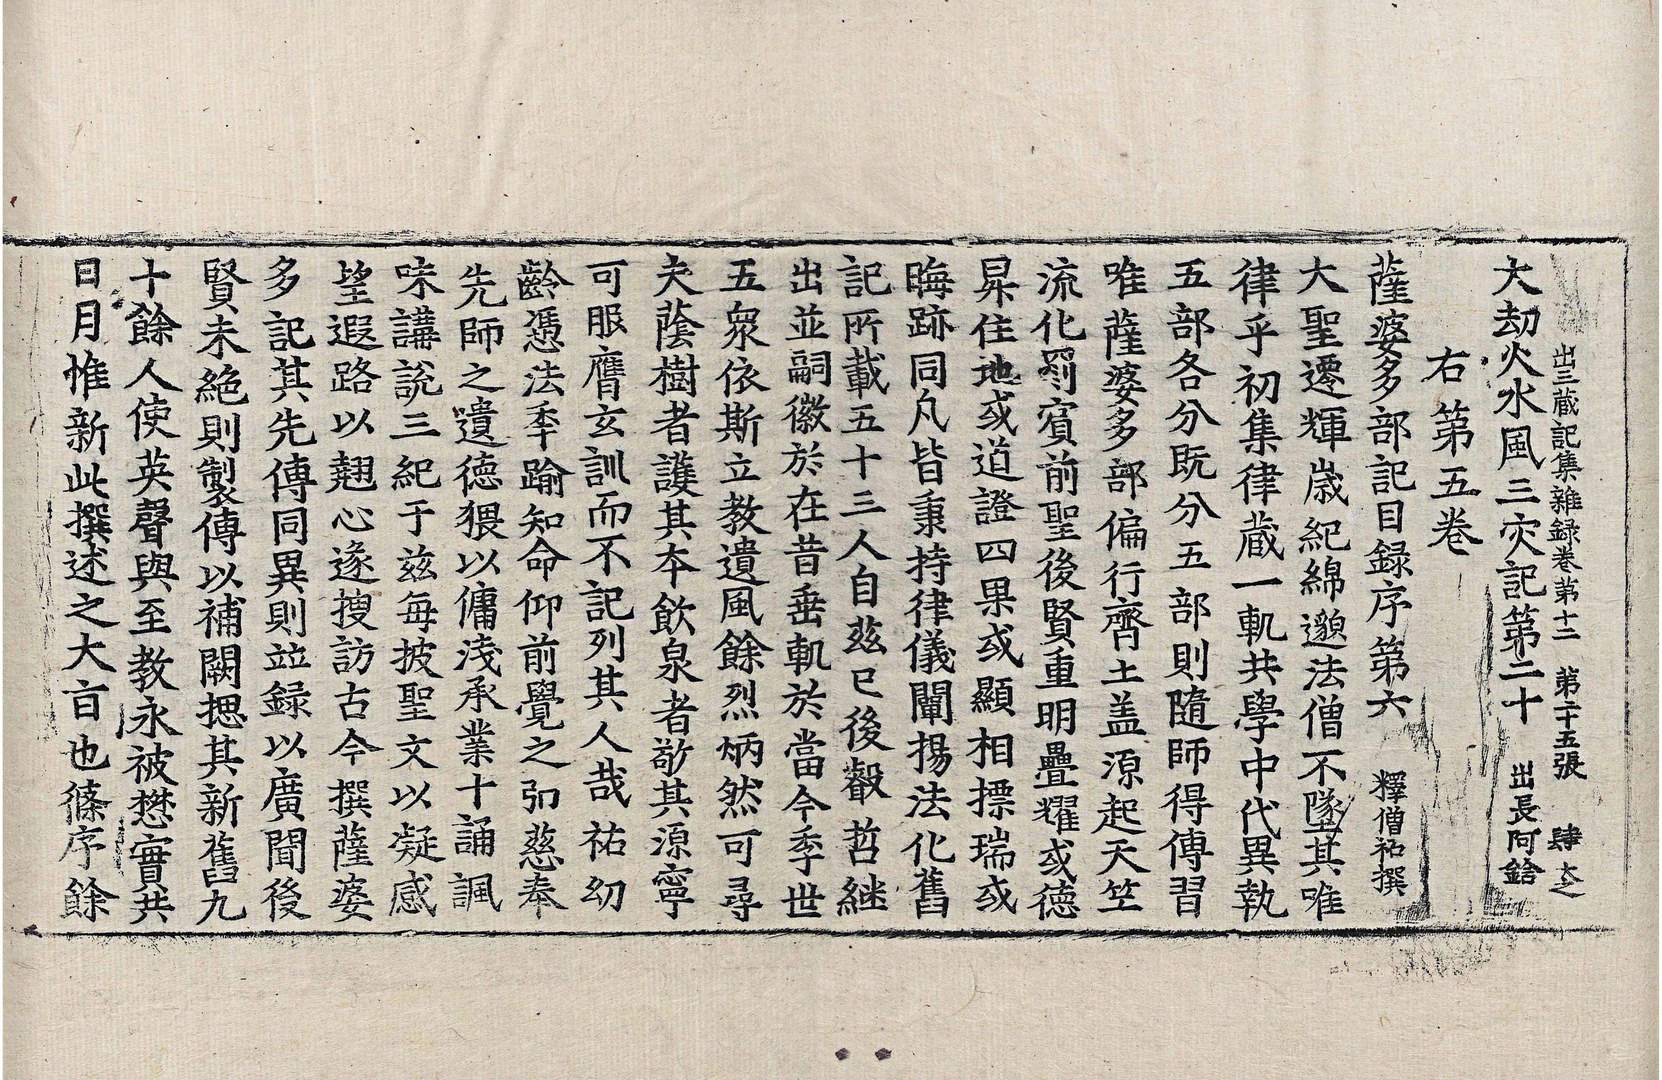 出三藏記集雜録卷第十二 第二十五張 肆之
大劫火水風三灾記第二十 出長阿鋡
右第五卷
薩婆多部記目録序第六 釋僧祐撰
大聖遷輝歳紀綿邈法僧不墜其唯
律乎初集律藏一軌共學中代異執
五部各分既分五部則隨師得傳習
唯薩婆多部偏行齊土盖源起天竺
流化罽賓前聖後賢重明疊耀或德
昇住地或道證四果或顯相摽瑞或
晦跡同凡皆秉持律儀闡揚法化舊
記所載五十三人自兹已後叡哲継
出並嗣徽於在昔垂軌於當今季世
五衆依斯立教遺風餘烈炳然可尋
夫蔭樹者護其本飲泉者敬其源寧
可服膺玄訓而不記列其人哉祐㓜
齡憑法季踰知命仰前覺之弘慈奉
先師之遺德猥以庸淺承業十誦諷
味講說三紀于兹每披聖文以凝感
望遐路以翹心遂搜訪古今撰薩婆
多記其先傳同異則並録以廣聞後
賢未絶則製傳以補闕揔其新舊九
十餘人使英聲與至教永被懋實共
日月惟新此撰述之大㫖也條序餘